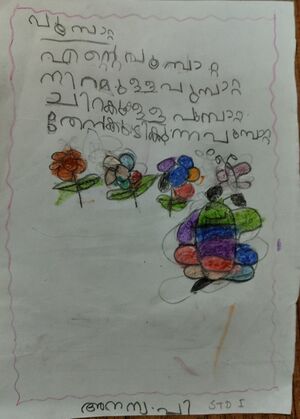 പൂമ്പാറ്റ
എന്റെ പൂമ്പാറ്റ
നിറമുള്ള പൂമ്പാറ്റ
ചിറകുള്ള പൂമ്പാറ്റ
തേൻകുടിക്കുന്ന പൂമ്പാറ്റ
അനന്യ . പി STD I